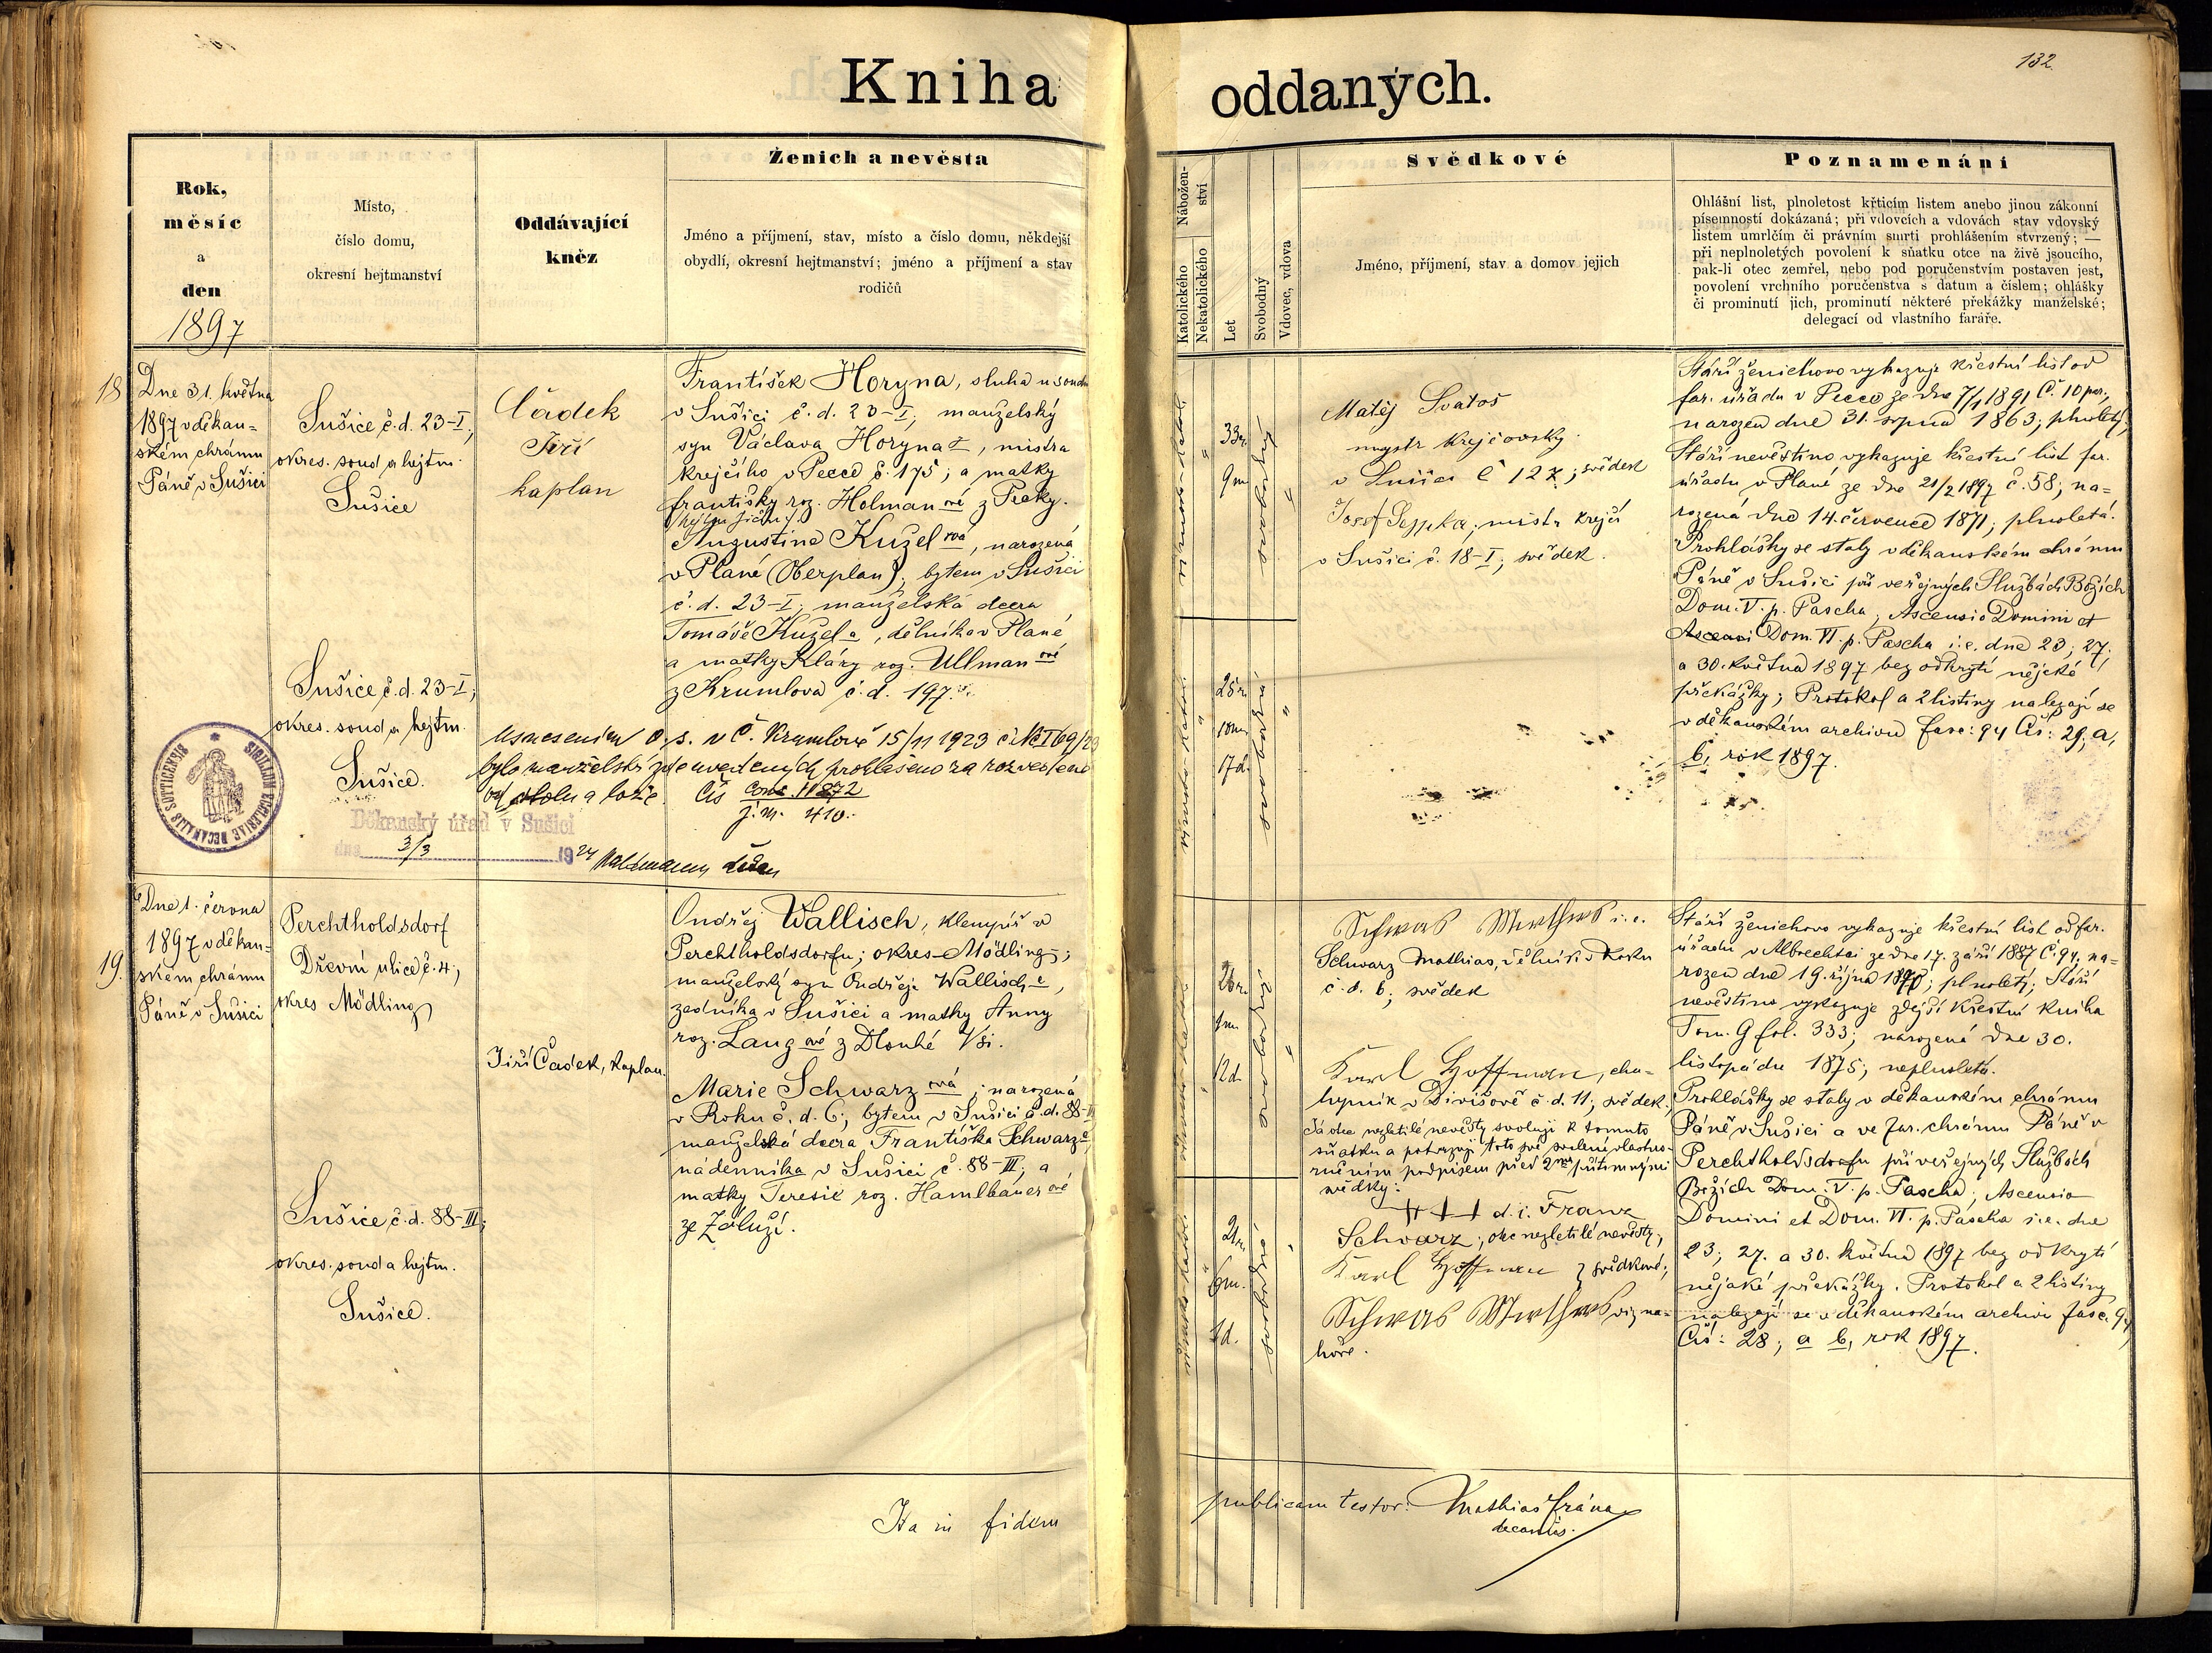 132.
Kniha oddaných.
Rok,
měsíc
a
den
1897
Místo,
číslo domu,
okresní hejtmanství
Oddávající
kněz
Ženich a nevěsta
Jméno a příjmení, stav, místo a číslo domu, někdejší
obydlí, okresní hejtmanství; jméno a příjmení a stav
rodičů
Nábožen-
ství
Katolického
Nekatolického
Let
Svobodný
Vdovec, vdova
Svědkové
Jméno, příjmení, stav a domov jejich
Poznamenání
Ohlášní list, plnoletost křticím listem anebo jinou zákonní
písemností dokázaná; při vdovcích a vdovách stav vdovský
listem umrlčím či právním smrti prohlášením stvrzený; —
při neplnoletých povolení k sňatku otce na živě jsoucího,
pak-li otec zemřel, nebo pod poručenstvím postaven jest,
povolení vrchního poručenstva s datum a číslem; ohlášky
či prominutí jich, prominutí některé překážky manželské;
delegací od vlastního faráře.
18
Dne 31. května
1897 v děkan=
ském chrámu
Páně v Sušici
Sušice č. d. 23-I;
okres. soud a hejtm.
Sušice
Čádek
Jiří
kaplan
František Horyna, sluha u soudu
v Sušici č. d. 23-I; manželský
syn Václava Horyna, mistra
krejčího v Pecce č. 175; a matky
Františky roz. Holmanové z Pecky.
Augustina Kuželová, narozená
v Plané (Oberplan); bytem v Sušici
č. d. 23-I; manželská dcera
Tomáše Kužela, dělníka v Plané
a matky Kláry roz. Ullmanové
z Krumlova č. d. 197.
Sušice č. d. 23-I;
okres. soud a hejtm.
Sušice.
SIGILLUM ECCLESIAE DECANALIS SUTTICENSIS
Usnesením o. s. v Č. Krumlově 15/11 1923
bylo manželství zde uvedených prohlášeno za rozvedené
od stolu a lože. Čís
j. m. 410.
Děkanský úřad v Sušici
dne 3/3 1924
33 r.
9 m.
svobodný
25 r.
10 m.
17 d.
svobodná
Matěj Svatoš
mystr krejčovský
v Sušici č 127; svědek
Josef Seppka; mistr krejčí
v Sušici č. 18-I; svědek.
Stáří ženichovo vykazuje křestní list od
far. úřadu v Pecce ze dne 7/1 1891 Č. 10 por.,
narozen dne 31. srpna 1863; plnoletý;
Stáří nevěstino vykazuje křestní list far.
úřadu v Plané ze dne 21/2 1897 č. 58; na=
rozená dne 14. července 1871; plnoletá.
Prohlášky se staly v děkanském chrámu
Páně v Sušici při veřejných Službách Božích
Dom. V. p. Pascha; Ascensio Domini et
Dom. VI. p. Pascha i. e. dne 23; 27;
a 30. května 1897 bez odkrytí nějaké
překážky; Protokol a 2 listiny nalezají se
v děkanském archivu fasc: 94 Čís: 29; a,
b, rok 1897.
19.
Dne 1. června
1897 v děkan=
ském chrámu
Páně v Sušici
Perchtholdsdorf
Dřevní ulice č. 4;
okres Mödling
Jiří Čádek, kaplan.
Ondřej Wallisch, klempíř v
Perchtholdsdorfu; okres Mödling;
manželský syn Ondřeje Wallische,
zedníka v Sušici a matky Anny
roz. Langové z Dlouhé Vsi.
Marie Schwarzová; narozená
v Roku č. d. 6; bytem v Sušici č. d. 88-III
manželská dcera Františka Schwarze
nádenníka v Sušici č. 88-III; a
matky Teresie roz. Hamlbauerové
ze Záluží.
Sušice č. d. 88-III;
okres. soud a hejtm.
Sušice.
26 r.
12 d.
svobodný
21 r.
6 m.
1 d.
svobodná
i. e.
Schwarz Mathias, dělník v Roku
č. d. 6; svědek
Karl Hoffman, cha=
lupník v Divišově č. d. 11; svědek;
Já otec nezletilé nevěsty svoluji k tomuto
sňatku a potvrzuji toto své svolení vlastno=
ručním podpisem před 2ma přítomnými
svědky:
+++ d. i. Franz
Schwarz; otec nezletilé nevěsty;
Karl Hoffman } svědkové;
viz na=
hoře.
Stáří ženichovo vykazuje křestní list od far.
úřadu v Albrechtsi ze dne 17. září 1887 Č. 94; na=
rozen dne 19. října 1870; plnoletý; Stáří
nevěstino vykazuje zdejší křestní kniha
Tom. G fol. 333; narozená dne 30.
listopadu 1875; neplnoletá.
Prohlášky se staly v děkanském chrámu
Páně v Sušici a ve far. chrámu Páně v
Perchtholdsdorfu při veřejných Službách
Božích Dom. V. p. Pascha; Ascensio
Domini et Dom. VI. p. Pascha i. e. dne
23; 27. a 30. května 1897 bez odkrytí
nějaké překážky. Protokol a 2 listiny
nalezají se v děkanském archivu fasc. 94
Čís: 28; a b, rok 1897.
Ita in fidem publicam testor: Mathias Frána
decanus.